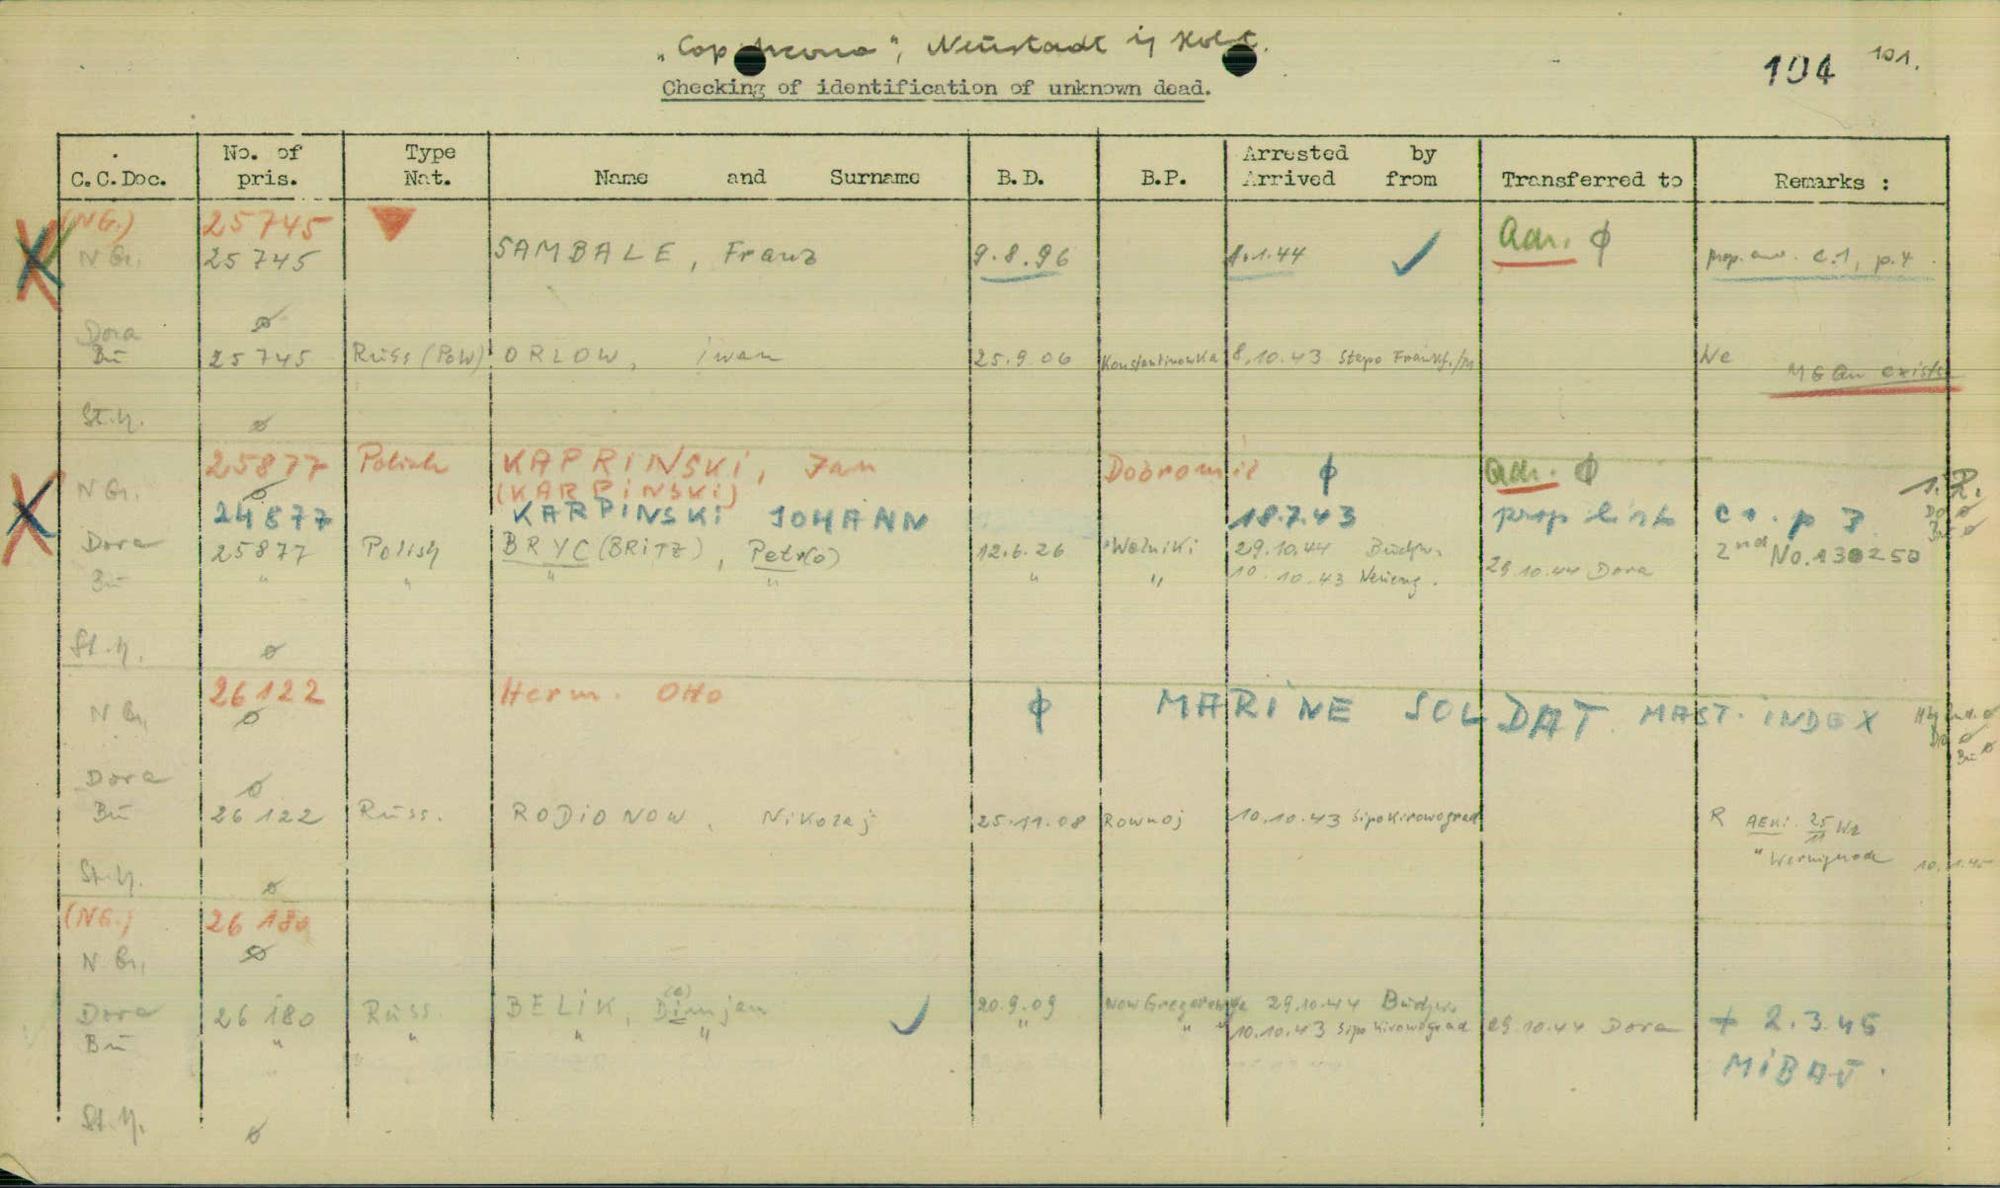 "Cap Arcona", Neustadt ij Holst.
104 101.
Checking of identification of unknown dead.
C.C.Doc. No. of pris. Type Nat. Name and Surname B.D. B.P. Arrested by Arrived from Transferred to Remarks :
(NG.) 25745
N Gr. 25745 SAMBALE, Franz 9.8.96 8.1.44 ✓ Adr. ϕ prop. c.1, p.4
Dora ∅
Bu 25745 Russ (PoW) ORLOW, iwan 25.9.06 Konstantinowka 8.10.43 Stapo Frankf./M Ne
exists
St.H. ∅
25877 Polish KAPRINSKI, Jan Dobromil ϕ Adr. ϕ
N Gr. ∅ (KARPINSKI)
24877 KARPINSKI JOHANN 18.7.43 prop list c1. p 3
Dora 25877 Polish BRYC (BRITZ), Petr(o) 12.6.26 Wolniki 29.10.44 Buchw. 2nd No.130250
Bu " " " " " " 10.10.43 Neueng. 29.10.44 Dora
St.H. ∅
26122 Herm. Otto ϕ MARINE SOLDAT MAST. INDEX
N Gr. ∅
Dora ∅
Bu 26122 Russ. RODIONOW, Nikolaj 25.11.08 Rownoj 10.10.43 Sipo Kirowograd R
St.H. ∅
(NG.) 26180
N Gr. ∅
Dora 26180 Russ. BELIK, Dimjan ✓ 20.9.09 29.10.44 Buchw.
Bu " " " " " " " 10.10.43 Sipo Kirowograd 29.10.44 Dora + 2.3.45
MIBAU.
St.H. ∅